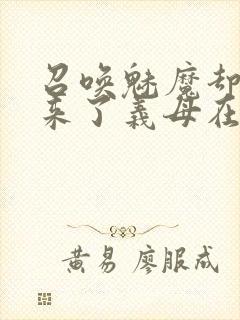 召唤魅魔却
来了義母在
黄易 廖服成